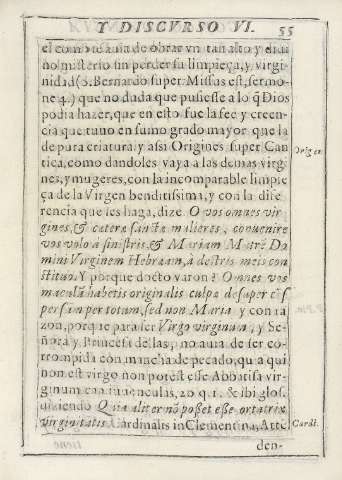 Y DISCVRSO VI. 55
el como auia de obrar vn tan alto y diui
no misterio sin perder su limpieça, y virgi
nidad (S. Bernardo super Missus est, sermo-
ne 4.) que no duda que pusiesse a lo q̃ Dios
podia hazer, que en esto fue la fee y creen-
cia que tuuo en sumo grado mayor que la
de pura criatura y assi Origines super Can
tica, como dandoles vaya a las demas virgi
nes, y mugeres, con la incomparable limpie
ça de la Virgen benditissima, y con la dife
rencia que les haga, dize. O vos omnes vir
gines, & cæteræ sanctæ mulieres, conuenire
vos volo à sinistris, & Mariam Matrẽ Do
mini Virginem Hebræam, à dextris meis con
stituo. Y porque docto varon? Omnes vos
maculã habetis originalis culpæ desuper
per totum, sed non Maria y con ra
zon, porque para ser Virgo virginum, y Se-
ñora y Princesa dellas, no auia de ser co-
rrompida con mancha de pecado, qu a qui
non est virgo non potest esse Abbatissa vir-
ginum can. iuuenculas, 20 q. 1. & ibi glos.
diziendo Quia aliter nõ posset esse ortatrix
virginitatis Cardinalis in Clementina, Atte
den-
Origen.
Cardi.